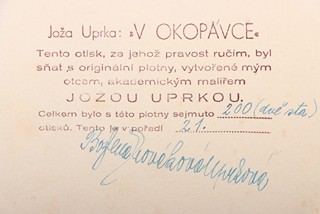 Joža Uprka: »V OKOPÁVCE«
Tento otisk, za jehož pravost ručím, byl
sňat s originální plotny, vytvořené mým
otcem, akademickým malířem
JOZOU UPRKOU.
Celkem bylo s této plotny sejmuto 200 (dvě sta)
otisků. Tento je v pořadí 21.
Božena Nováková Uprková